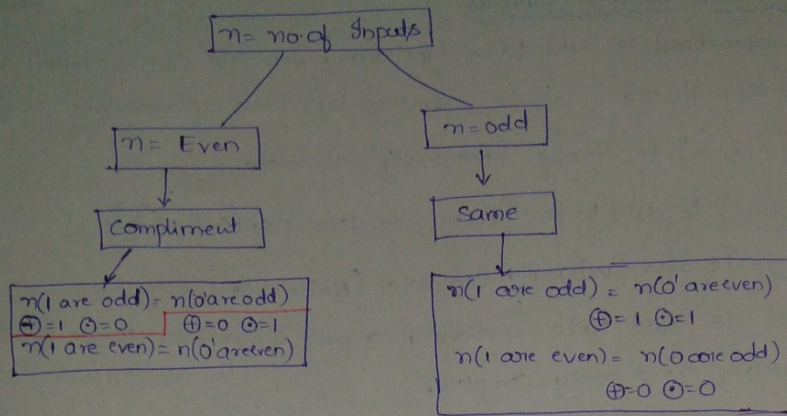 n= no.of Inputs
n= Even
n=odd
Compliment
Same
n(1 are odd)= n(0'areodd)
⊕=1 ⊙=0 ⊕=0 ⊙=1
n(1 are even)= n(0'areeven)
n(1 are odd)= n(0'areeven)
⊕=1 ⊙=1
n(1 are even)= n(0 are odd)
⊕=0 ⊙=0